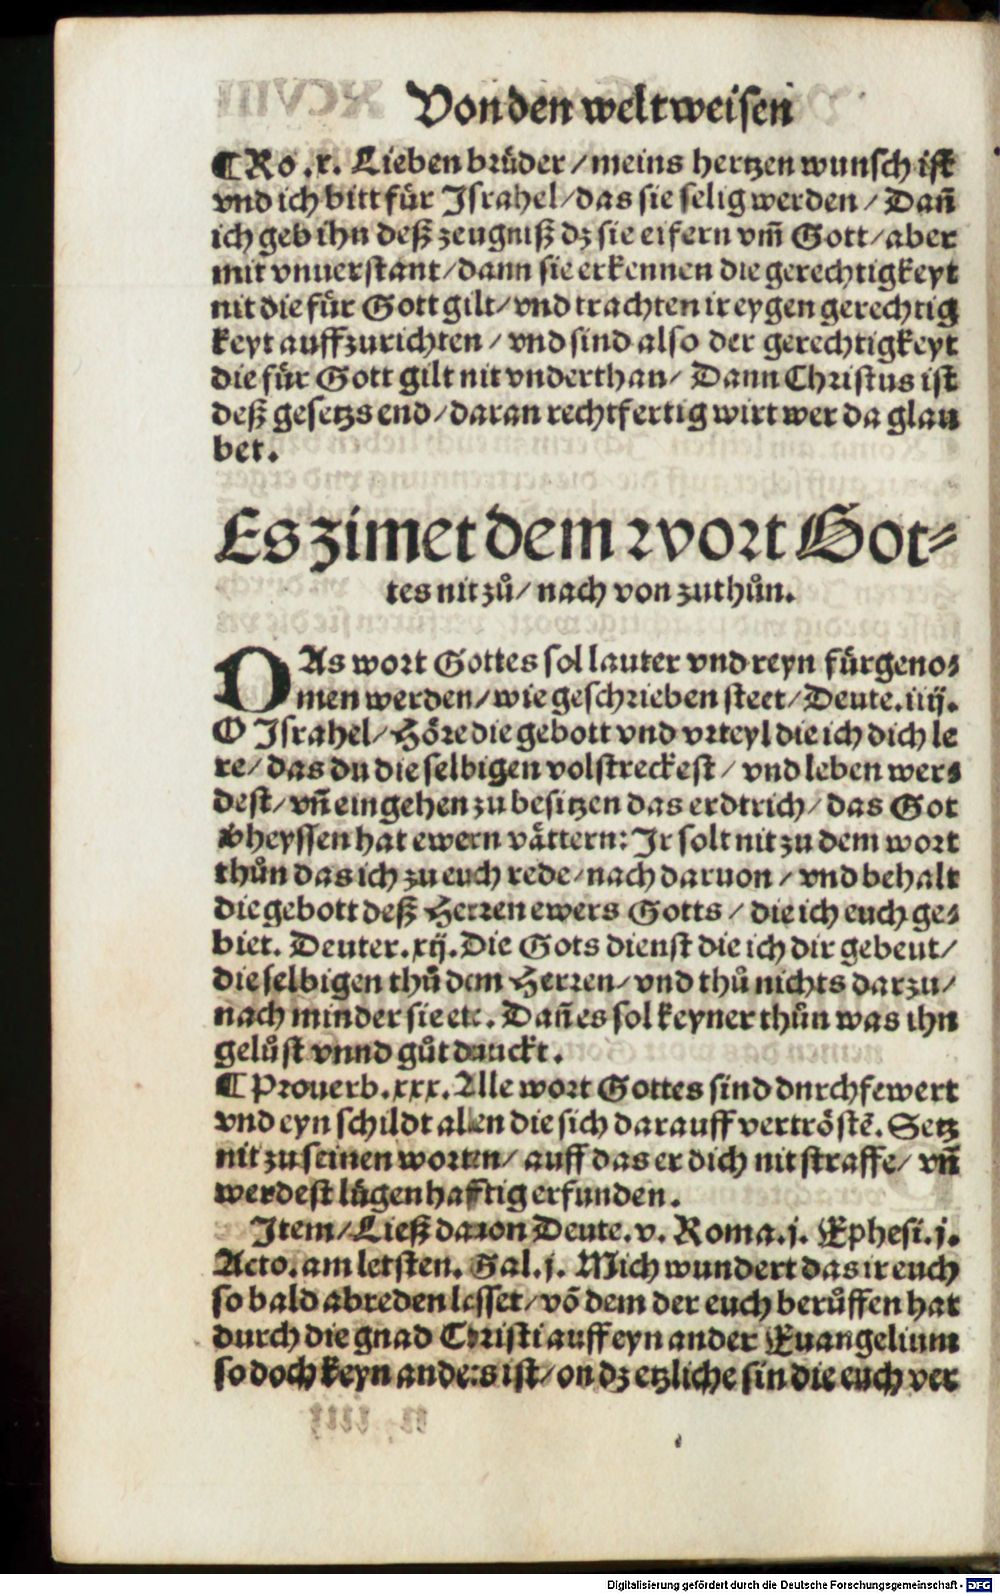 Von den weltweisen
¶ Ro .x. Lieben brüder / meins hertzen wunsch ist
vnd ich bitt für Israhel / das sie selig werden / Dañ
ich geb ihn deß zeugniß dz sie eifern vm̄ Gott / aber
mit vnuerstant / dann sie erkennen die gerechtigkeyt
nit die für Gott gilt / vnd trachten ir eygen gerechtig
keyt auffzurichten / vnd sind also der gerechtigkeyt
die für Gott gilt nit vnderthan / Dann Christus ist
deß gesetzs end / daran rechtfertig wirt wer da glau
bet.
Es zimet dem wort Got⸗
tes nit zů / nach von zuthůn.
DAs wort Gottes sol lauter vnd reyn fürgeno⸗
men werden / wie geschrieben steet / Deute. iiij.
O Israhel / Höre die gebott vnd vrteyl die ich dich le
re / das du die selbigen volstreckest / vnd leben wer⸗
dest / vñ eingehen zu besitzen das erdtrich / das Got
vheyssen hat ewern vättern: Ir solt nit zu dem wort
thůn das ich zu euch rede / nach daruon / vnd behalt
die gebott deß Herren ewers Gotts / die ich euch ge⸗
biet. Deuter. xij. Die Gots dienst die ich dir gebeut /
die selbigen thů dem Herren / vnd thů nichts darzu /
nach minder sie etc. Dañ es sol keyner thůn was ihn
gelůst vnnd gůt dunckt.
¶ Prouerb. xxx. Alle wort Gottes sind durchfewert
vnd eyn schildt allen die sich darauff vertröstē. Setz
nit zu seinen worten / auff das er dich nit straffe / vñ
werdest lügenhafftig erfunden.
Item / Ließ dauon Deute. v. Roma. j. Ephesi. j.
Acto. am letsten. Gal. j. Mich wundert das ir euch
so bald abreden lesset / vō dem der euch berůffen hat
durch die gnad Christi auff eyn ander Euangelium
so doch keyn anders ist / on dz etzliche sin die euch ver
Digitalisierung gefördert durch die Deutsche Forschungsgemeinschaft - DFG